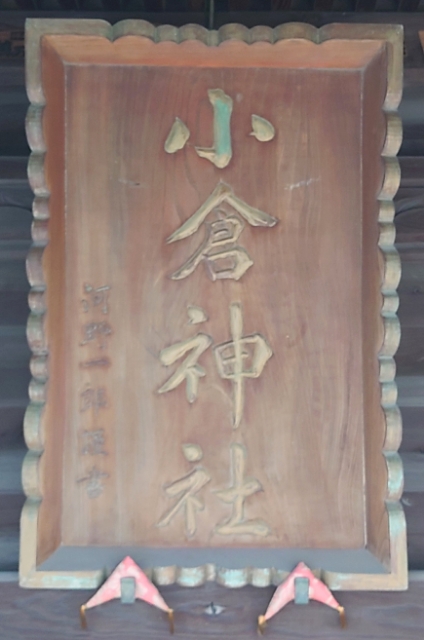 小倉神社
河野一郎謹書